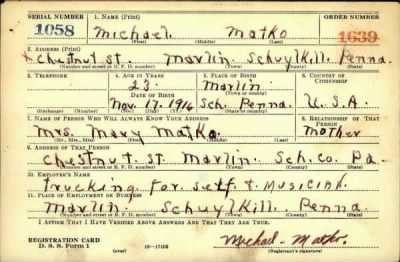 SERIAL NUMBER 1. NAME (Print) ORDER NUMBER
1058 Michael Matko 1639
(First) (Middle) (Last)
2. ADDRESS (Print)
x Chestnut st. Marlin Schuylkill Penna.
(Number and street or R. F. D. number) (Town) (County) (State)
3. TELEPHONE 4. AGE IN YEARS 5. PLACE OF BIRTH 6. COUNTRY OF CITIZENSHIP
23. Marlin
DATE OF BIRTH (Town or county)
Nov. 17. 1916 Sch. Penna. U.S.A.
(Exchange) (Number) (Mo.) (Day) (Yr.) (State or country)
7. NAME OF PERSON WHO WILL ALWAYS KNOW YOUR ADDRESS 8. RELATIONSHIP OF THAT PERSON
Mrs. Mary Matko. Mother
(Mr., Mrs., Miss) (First) (Middle) (Last)
9. ADDRESS OF THAT PERSON
Chestnut. st. Marlin. Sch. co. Pa.
(Number and street or R. F. D. number) (Town) (County) (State)
10. EMPLOYER'S NAME
trucking for self. & Musician.
11. PLACE OF EMPLOYMENT OR BUSINESS
Marlin. Schuylkill Penna.
(Number and street or R. F. D. number) (Town) (County) (State)
I AFFIRM THAT I HAVE VERIFIED ABOVE ANSWERS AND THAT THEY ARE TRUE.
REGISTRATION CARD
D. S. S. Form 1 (over) 16-17105 Michael - Matko.
(Registrant's signature)